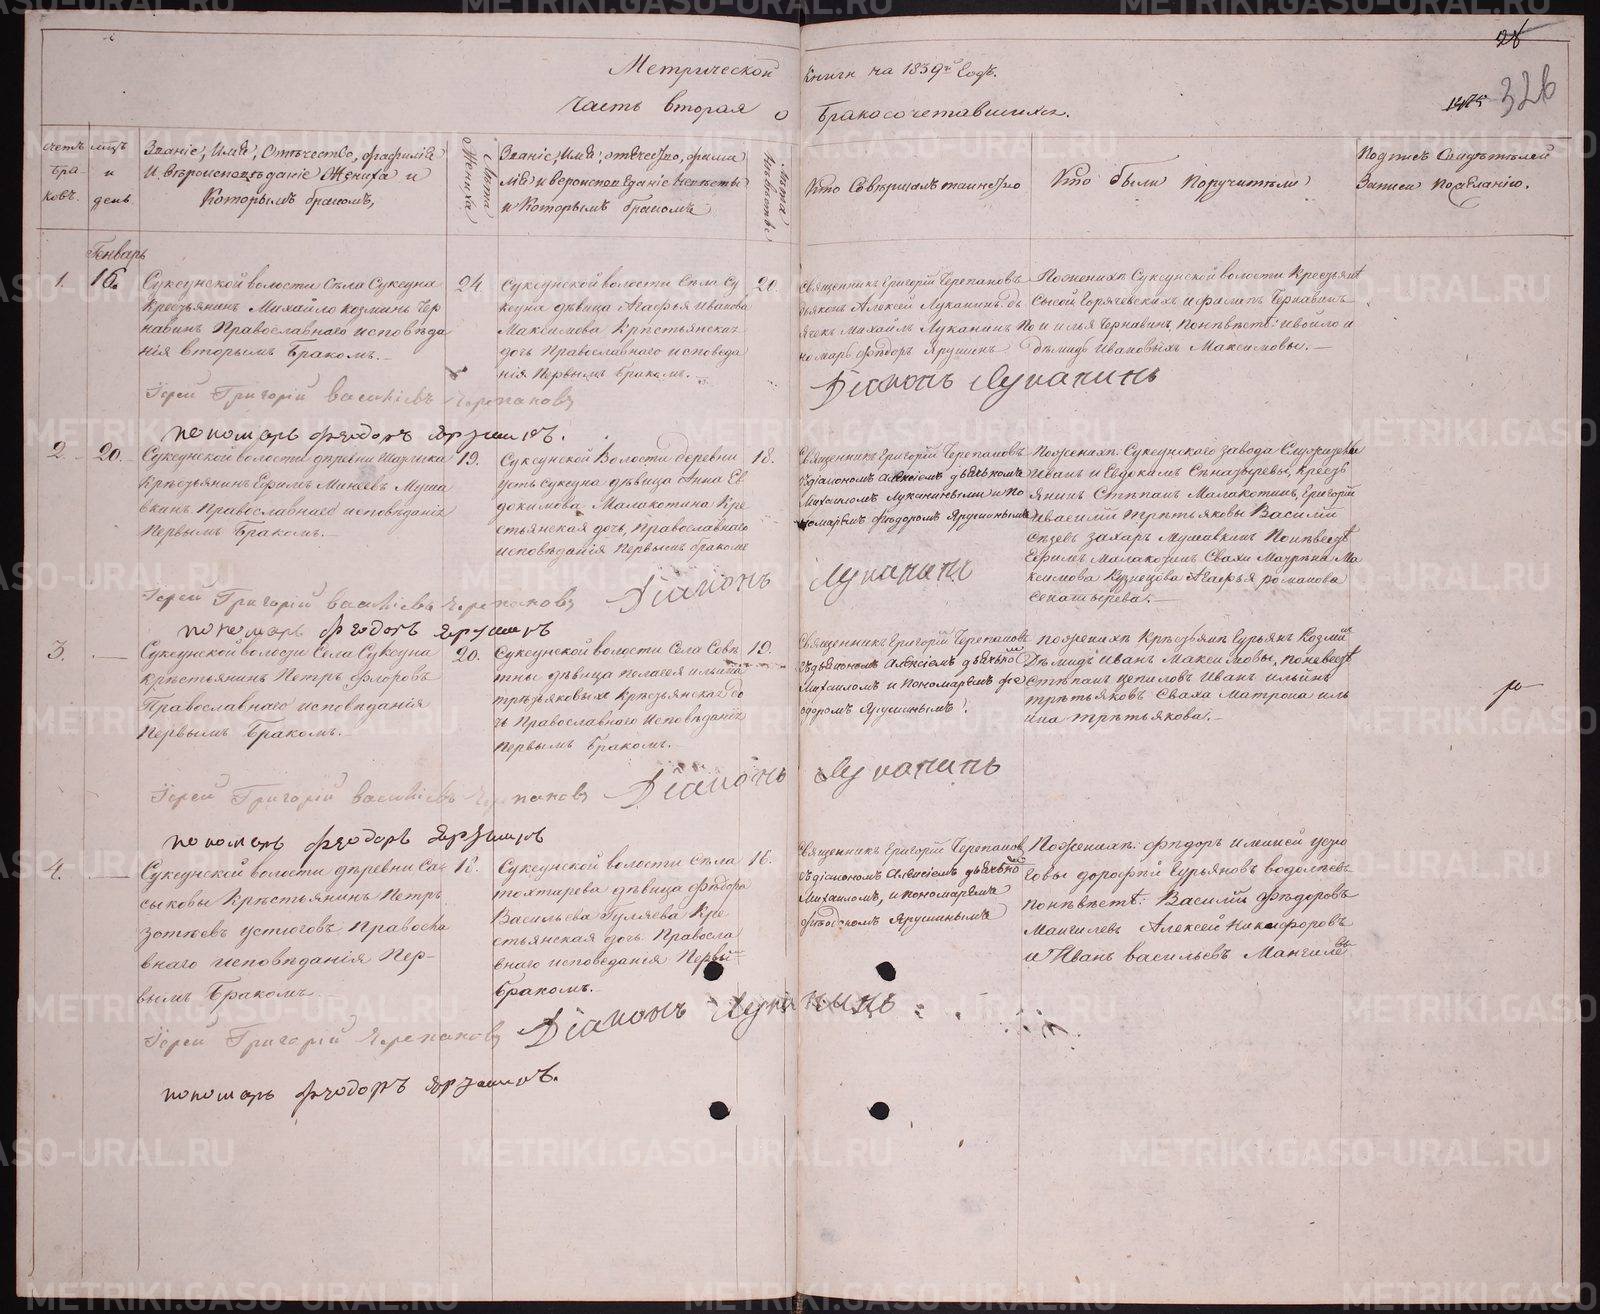 Метрической Книги на 1839й Годъ.
Часть вторая о Бракосочетавшихся.
28
1475 326
Счетъ Браковъ.
мцъ и день
Званіе, Имя, Отечество, фафилія
И вероисповеданіе Жениха и
Которымъ бракомъ,
Лета Жениха
Званіе, Имя, отечество, фами
лія и вероисповеданіе Невесты
и Которымъ бракомъ
Лета Невесты
Кто Совершалъ таинство
Кто были Поручители
Подпись Свидетелей
Записи по желанію.
Генварь
1. 16.
Суксунской волости Села Суксуна
Крестьянинъ Михайло козминъ Чер
навинъ Православнаго исповѣда
нія вторымъ Бракомъ.
24.
Суксунской волости Села Су
ксуна дѣвица Агафья Иванова
Максимова Крестьянская
дочь Православнаго исповеда
нія Первымъ Бракомъ.
20.
Священникъ Григорій Черепановъ
дьяконъ Алексей Луканинъ дь
ячекъ Михайлъ Луканинъ По
номарь Фѣдоръ Ярушинъ
По женихѣ Суксунской волости Крестьянѣ
Сысой Горячевскихъ и филипъ Чернавинъ
и илья Чернавинъ, по невѣстѣ: и
Демидъ Ивановыхъ Максимовы.
Іерей Григорій васильевъ Черепановъ
Діаконъ Луканинъ
пономарь Феодоръ Ярушинъ.
2. 20.
Суксунской волости деревни
Крестьянинъ Ефимъ Минѣевъ Муша
вкинъ Православнаго исповѣданія
Первымъ Бракомъ.
19.
Суксунской Волости деревни
Усть суксуна дѣвица Анна Ев
докимова Малакотина Кре
стьянская дочь, Православнаго
исповѣданія Первымъ бракомъ
18.
Священникъ Григорій Черепановъ
съ діакономъ Алексіемъ дьячькомъ
Михаиломъ Луканиными и по
номаремъ Фѣдоромъ Ярушинымъ
По женихѣ: Суксунскаго завода
Иванъ и Евдокимъ кресть
янинъ Степанъ Малакотинъ, Григорій
и васиілій третьяковы Василій
захаръ Мушавкинъ По невестѣ
Ефимъ малакотинъ Свахи Ма
ксимова Кузнецова Агафья романова
Іерей Григорій васильевъ Черепановъ
Діаконъ Луканинъ
пономарь Феодоръ Ярушинъ
3.
Суксунской волости Села Суксуна
крестьянинъ Петръ флоровъ
Православнаго исповѣданія
Первымъ Бракомъ.
20.
Суксунской волости Села Совѣ
тны дѣвица пелагея ильина
третьяковыхъ Крестьянская до
чь Православнаго Исповѣданія
Первымъ Бракомъ.
19.
Священникъ Григорій Черепановъ
съ дьякономъ Алексіемъ дьячькомъ
Михаиломъ и Пономаремъ фе
одоромъ Ярушинымъ.
По женихѣ Гурьянъ Козмин
Демидъ Иванъ Максимовы, по невестѣ
Степанъ Иванъ ильинъ
третьяковъ Сваха Матрона иль
ина третьякова.
Іерей Григорій васильевъ Черепановъ
Діаконъ Луканинъ
пономарь Феодоръ Ярушинъ
4.
Суксунской волости деревни Са
сыковы Крестьянинъ Петръ
зотѣевъ устюговъ Правосла
внаго исповѣданія Пер-
вымъ Бракомъ
18.
Суксунской волости Села
тохтарева дѣвица Фѣдора
Васильева Гуляева Кре
стьянская дочь Правосла
внаго исповеданія Первы
Бракомъ.
16.
Священникъ Григорій Черепановъ
съ діакономъ Алексіемъ дьячько
Михаиломъ, и пономаремъ
Фѣодоромъ Ярушинымъ
По женихѣ: Фѣдоръ и
дорофѣй Гурьяновъ
по невѣстѣ: Василій Фѣдоровъ
Мангилевъ Алексей Никифоровъ
и Иванъ васильевъ Мангилевъ
Іерей Григорій Черепановъ
Діаконъ Луканинъ
пономарь Феодоръ Ярушинъ.
METRIKI.GASO-URAL.RU